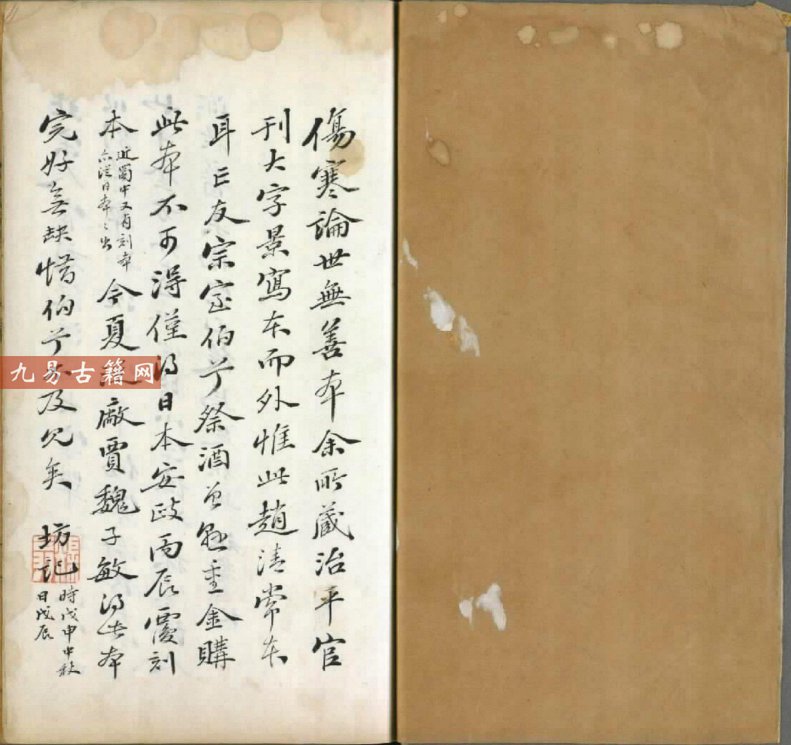 傷寒論世無善本余所藏治平官
刊大字景寫本而外惟此趙清常本
耳亡友宗室伯兮祭酒曾懸重金購
此本不可得僅得日本安政丙辰覆刻
本近蜀中又有刻本
亦從日本之出
今夏廠賈魏子敏得此本
完好無缺惜伯兮不及見矣 坊記
時戊申中秋
日戊辰
九易古籍网